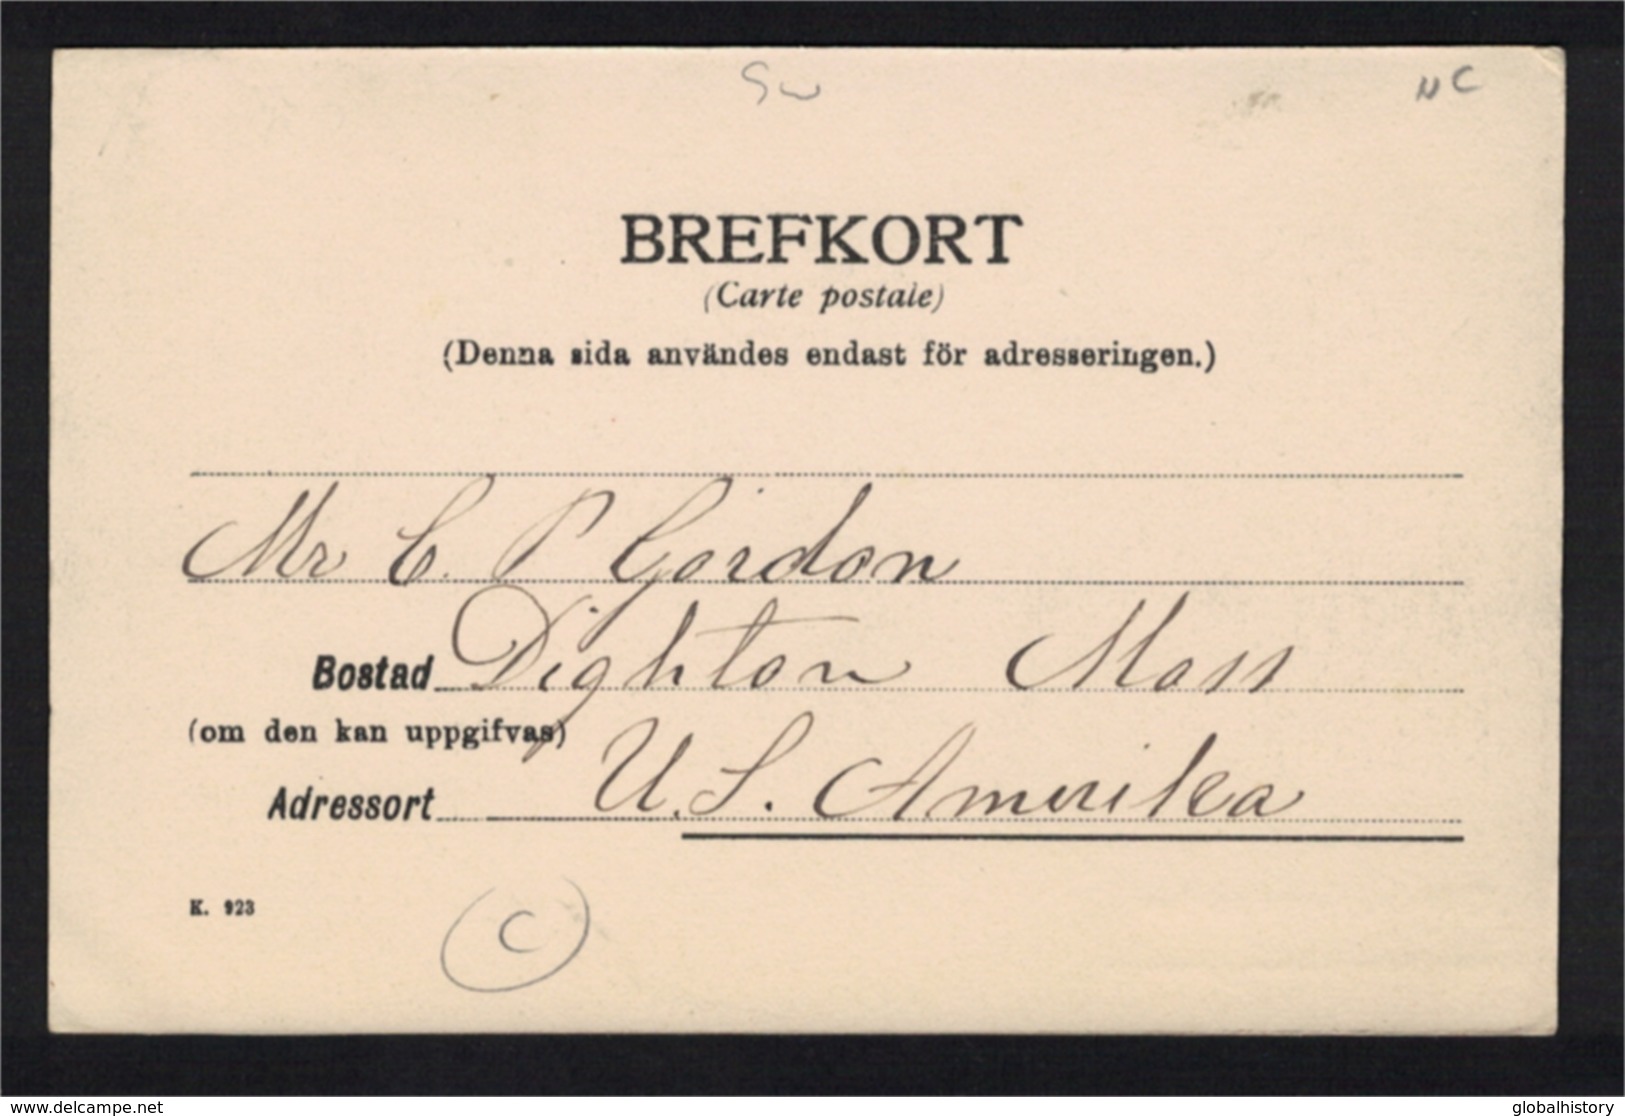 Sw
NC
BREFKORT
(Carte postale)
(Denna sida användes endast för adresseringen.)
Mr C. P Gordon
Bostad Dighton Mass
(om den kan uppgifvas)
U. S. Amerika
Adressort
K. 923
C
www.delcampe.net
globalhistory